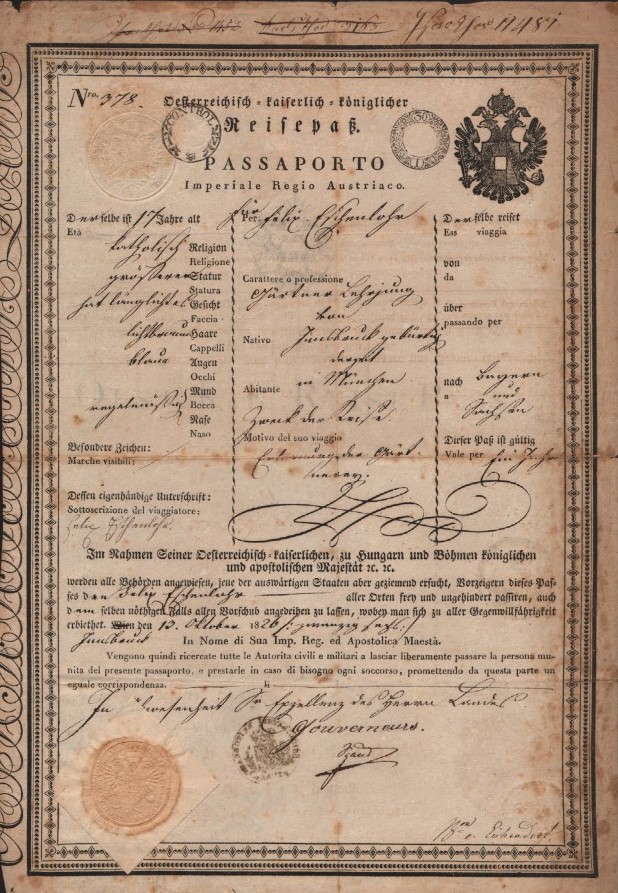 11481
Nro. 378.
CONTROL
Oesterreichisch-kaiserlich-königlicher
Reisepaß.
30
PASSAPORTO
Imperiale Regio Austriaco.
Derselbe ist 17 Jahre alt
Età
katholisch Religion
Religione
größerer Statur
Statura
hat länglichtes Gesicht
Faccia
lichtbraune Haare
Cappelli
blaue Augen
Occhi
Mund
regelmässig Bocca
Nase
Naso
Besondere Zeichen:
Marche visibili:
Dessen eigenhändige Unterschrift:
Sottoscrizione del viaggiatore:
Felix Eschenlohr
Für Felix Eschenlohr
Per
Carattere o professione
Gärtner Lehrjung
von
Nativo Innsbruck gebürtig
derzeit
Abitante in München
Zweck der Reise
Motivo del suo viaggio
Erlernung der Gärt-
nerey.
Derselbe reiset
Ess viaggia
von
da
über
passando per
nach Bayern
a und
Sachsen
Dieser Paß ist gültig
Vale per Ein Jahr
Im Nahmen Seiner Oesterreichisch-kaiserlichen, zu Hungarn und Böhmen königlichen
und apostolischen Majestät ꝛc. ꝛc.
werden alle Behörden angewiesen, jene der auswärtigen Staaten aber geziemend ersucht, Vorzeigern dieses Pas-
ses den Felix Eschenlohr aller Orten frey und ungehindert passiren, auch
dem selben nöthigen Falls allen Vorschub angedeihen zu lassen, wobey man sich zu aller Gegenwillfährigkeit
erbiethet. Wien den 13. Oktober 1826
Innsbruck
In Nome di Sua Imp. Reg. ed Apostolica Maestà.
Vengono quindi ricercate tutte le Autorita civili e militari a lasciar liberamente passare la persona mu-
nita del presente passaporto, e prestarle in caso di bisogno ogni soccorso, promettendo da questa parte un
eguale corrispondenza.
In Abwesenheit Sr Exzellenz des Herrn Landes
Gouverneurs.